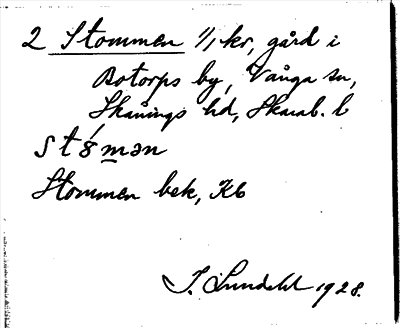 2 Stommen 1/1 kr, gård i
Botorps by, Vånga sn,
Skånings hd, Skarab. l
st8́mən
Stommen bek, Kb
J. Lundahl 1928.